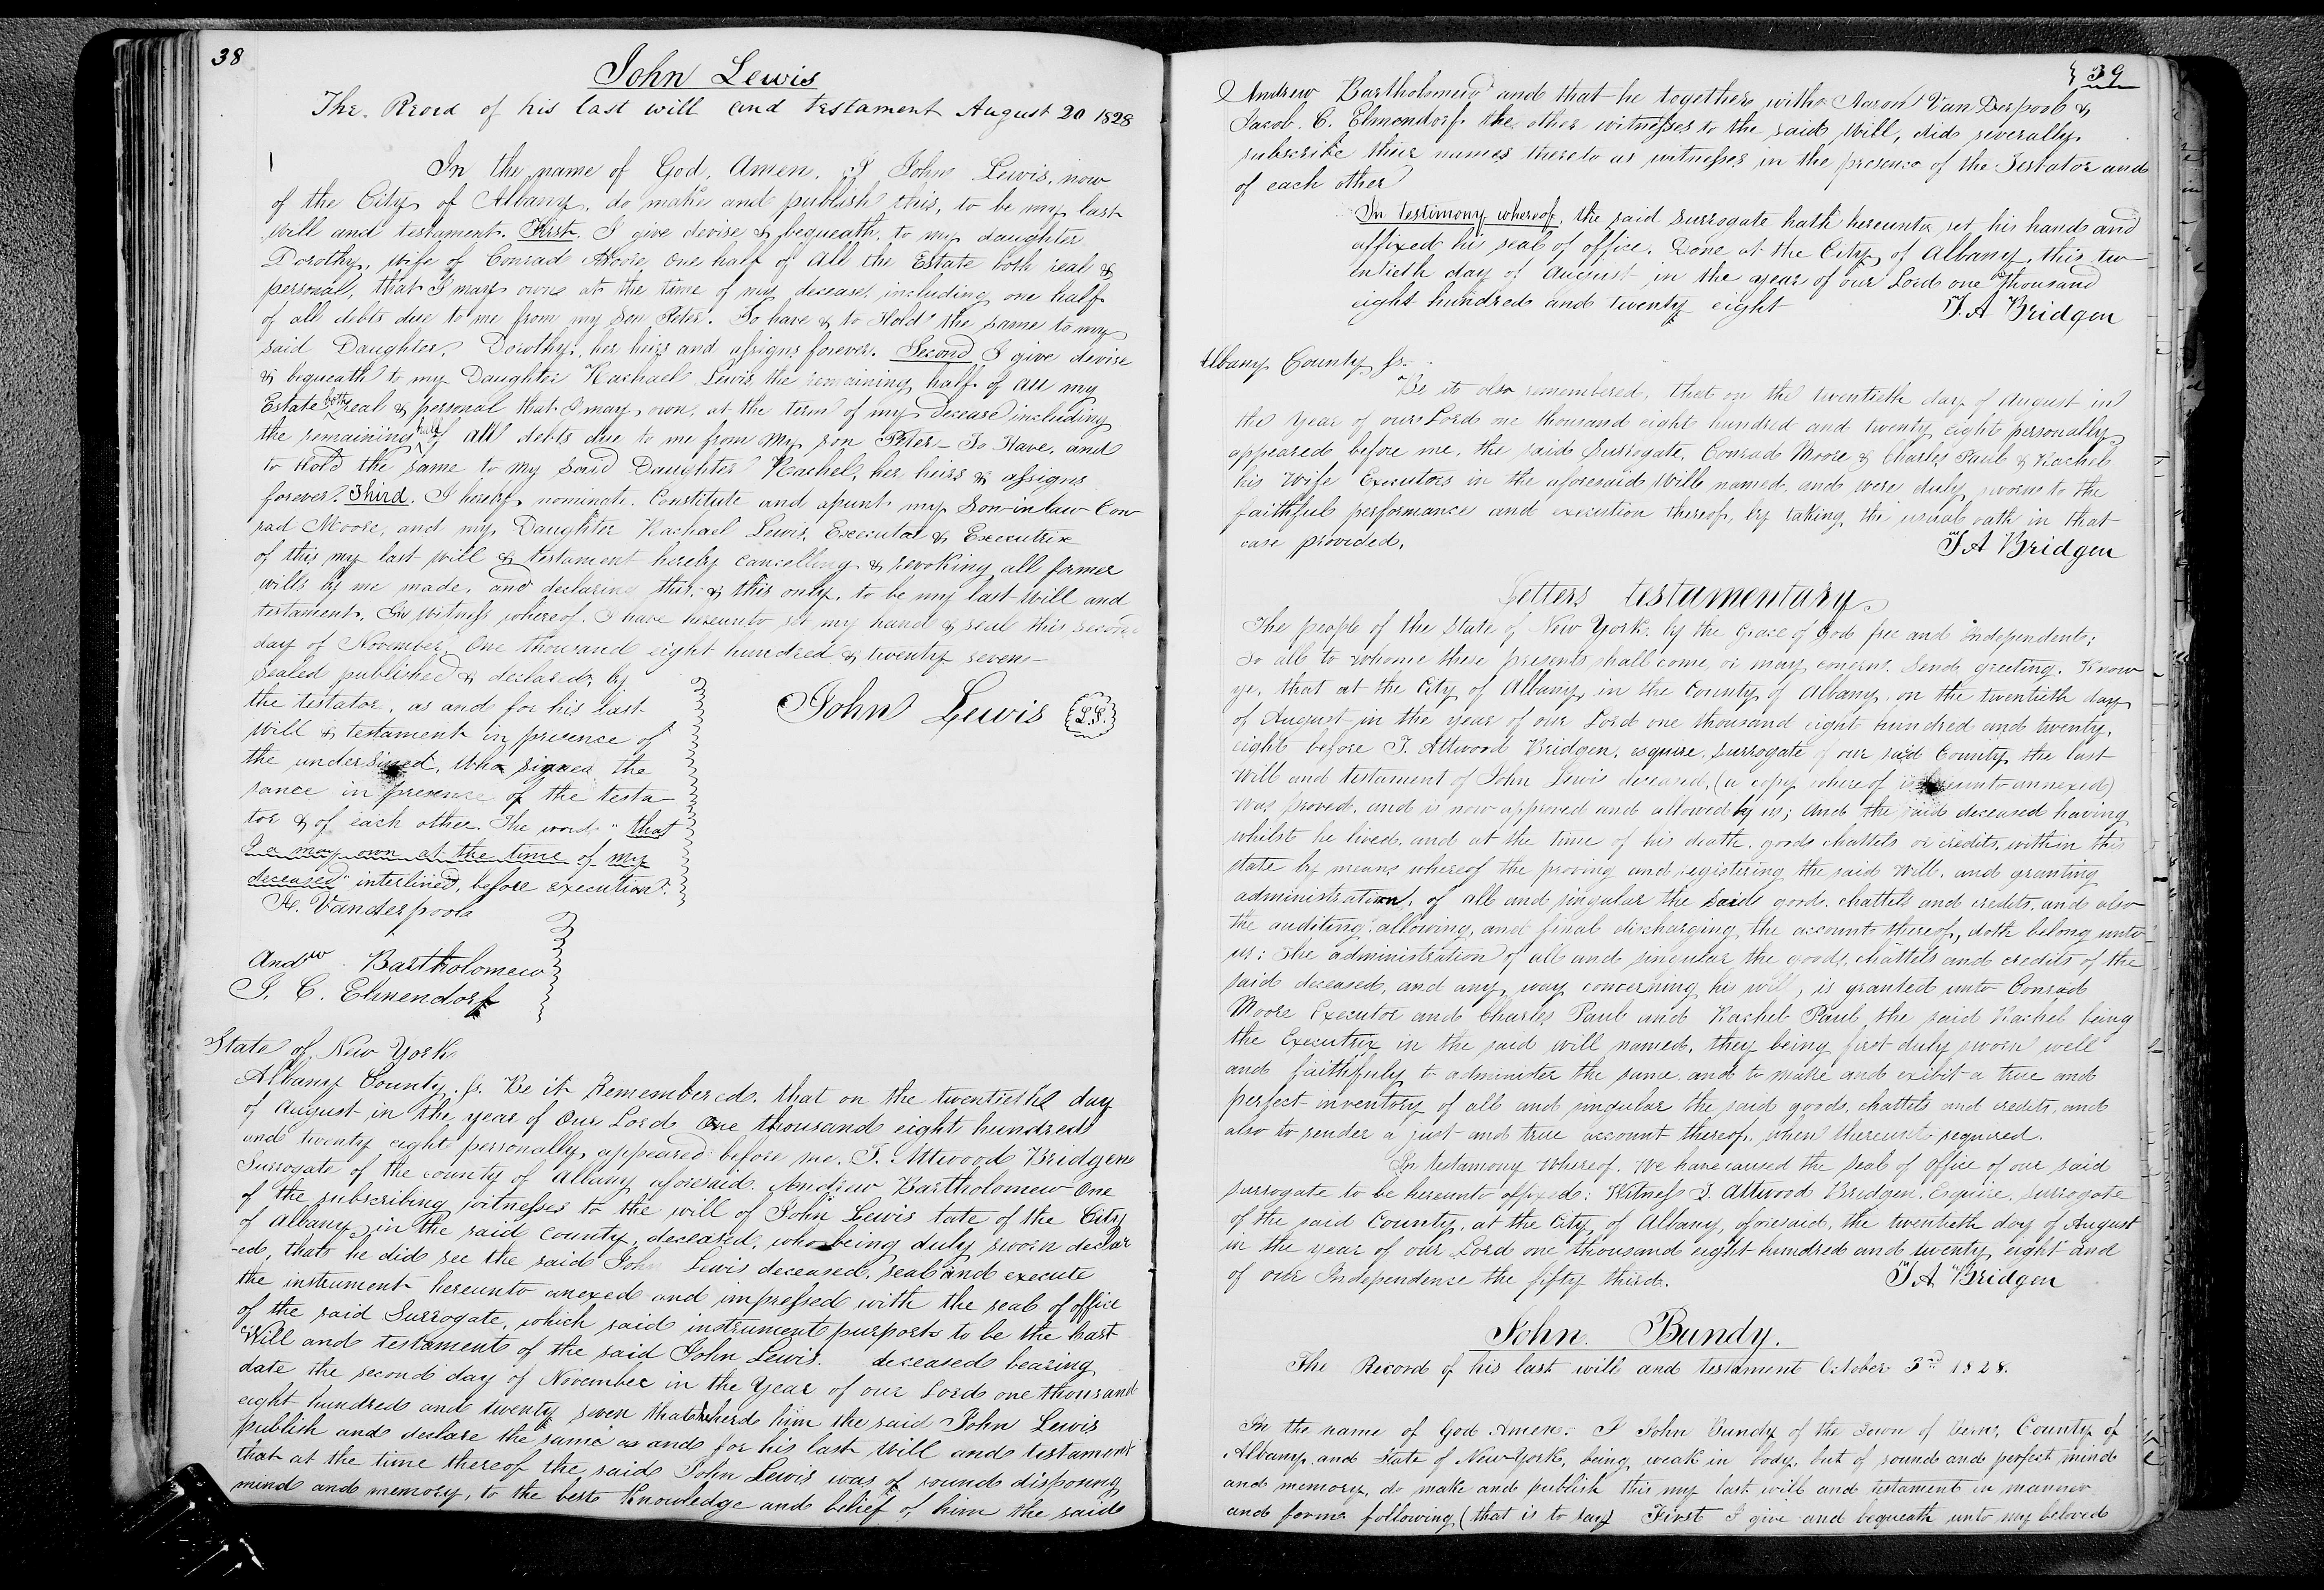 38
John Lewis
The Record of his last will and testament August 20 1828
In the name of God, Amen. I John Lewis, now
of the City of Albany, do make and publish this, to be my last
will and testament. First. I give devise & bequeath, to my daughter
Dorothy, wife of Conrad Moore, one half of all the Estate both real &
personal, that I may own at the time of my decease, including one half
of all debts due to me from my son Peter. To have & to Hold the same to my
said Daughter, Dorothy, her heirs and assigns forever. Second I give devise
& bequeath to my Daughter Rachael Lewis, the remaining half of all my
Estate both real & personal that I may own, at the term of my decease including
the remaining half of all debts due to me from my son Peter - To Have, and
to Hold the same to my said Daughter Rachel, her heirs & assigns
forever. Third. I hereby nominate, Constitute and apunt my Son-in-law Con
rad Moore, and my Daughter Rachael Lewis, Executor & Executrix
of this my last will & testament hereby cancelling & revoking all former
wills by me made, and declaring this, & this only, to be my last will and
testament. In Witness whereof, I have hereunto set my hand & seal this second
day of November, One thousand eight hundred & twenty seven -
Sealed published & declared, by
the testator, as and for his last
John Lewis L.S.
Will & testament in presence of
the undersined, who signed the
sance in presence of the testa
tor & of each other. The words "that
I a may own at the time of my
deceased" interlined, before execution.
A. Vanderpool
Andw. Bartholomew
J. C. Elmendorf
State of New York
Albany County, ss. Be it Remembered, that on the twentieth day
of August in the year of Our Lord One thousand eight hundred
and twenty eight personally appeared before me, T. Attwood Bridgen
Surrogate of the county of Albany aforesaid. Andrew Bartholomew One
of the subscribing witnesses to the will of John Lewis late of the City
of Albany in the said county, deceased, who being duly sworn declar
-ed, that he did see the said John Lewis deceased, seal and execute
the instrument hereunto anexed and impressed with the seal of office
of the said Surrogate, which said instrument purports to be the last
Will and testament of the said John Lewis. deceased bearing
date the second day of November in the Year of our Lord one thousand
eight hundred and twenty seven that he herd him the said John Lewis
publish and declare the same as and for his last Will and testament
that at the time thereof the said John Lewis was of sound disposing
mind and memory, to the best knowledge and belief of him the said
39
Andrew Bartholomew and that he together with Aaron Van Derpool &
Jacob. C. Elmondorf the other witnesses to the said Will, did severally
subscribe their names thereto as witnesses in the presence of the Testator and
of each other
In testimony whereof, the said surrogate hath hereunto set his hand and
affixed his seal of office. Done at the City of Albany, this tw
entieth day of August in the year of our Lord one thousand
eight hundred and twenty eight T. A Bridgen
Albany County ss.
Be it also remembered, that on the twentieth day of August in
the Year of our Lord one thousand eight hundred and twenty eight personally
appeared before me, the said Surrogate, Conrad Moore & Charles Paul & Rachel
his Wife Executors in the aforesaid Will named, and were duly sworn to the
faithful performance and execution thereof, by taking the usual oath in that
case provided. T A Bridgen
Letters testamentary
The people of the State of New York, by the Grace of God free and Independent;
To all to whome these presents shall come, or may concern. Send greeting. Know
ye, that at the City of Albany, in the County of Albany, on the twentieth day
of August in the year of our Lord one thousand eight hundred and twenty,
eight before T. Attwood Bridgen, esquire, surrogate of our said County, the last
will and testament of John Lewis deceased, (a copy whereof is hereunto annexed)
was proved, and is now approved and allowed by us; And the said deceased having
whilst he lived, and at the time of his death, goods chattels or credits, within this
state by means whereof the proving and registering the said Will, and granting
administration, of all and singular the said goods, chattels and credits, and also
the auditing, allowing, and final discharging the account thereof, doth belong unto
us; The administration of all and singular the goods, chattels and credits of the
said deceased, and any way concerning his will, is granted unto Conrad
Moore Executor and Charles Paul and Rachel Paul the said Rachel being
the Executrix in the said will named, they being first duly sworn well
and faithfuly to administer the same, and to make and exibit a true and
perfect inventory of all and singular the said goods, chattels and credits, and
also to render a just and true account thereof, when thereunto required.
In testamony whereof, we have caused the seal of office of our said
surrogate to be hereunto affixed: Witness T. Attwood Bridgen, Esquire, surrogate
of the said County, at the City of Albany, aforesaid, the twentieth day of August
in the year of our Lord one thousand eight hundred and twenty eight and
of our Independence the fifty third. T. A Bridgen
John Bundy.
The Record of his last will and testament October 3rd 1828.
In the name of God Amen. I John Bundy of the Town of Bern, County of
Albany, and State of New York, being weak in body, but of sound and perfect mind
and memory, do make and publish this my last will and testament in manner
and form following (that is to say) First I give and bequeath unto my beloved